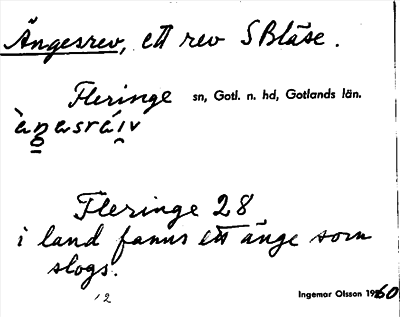 Ängesrev, ett rev S Bläse.
Fleringe sn, Gotl. n. hd, Gotlands län.
Fleringe 28
i land fanns ett änge som
slogs.
12
Ingemar Olsson 1960